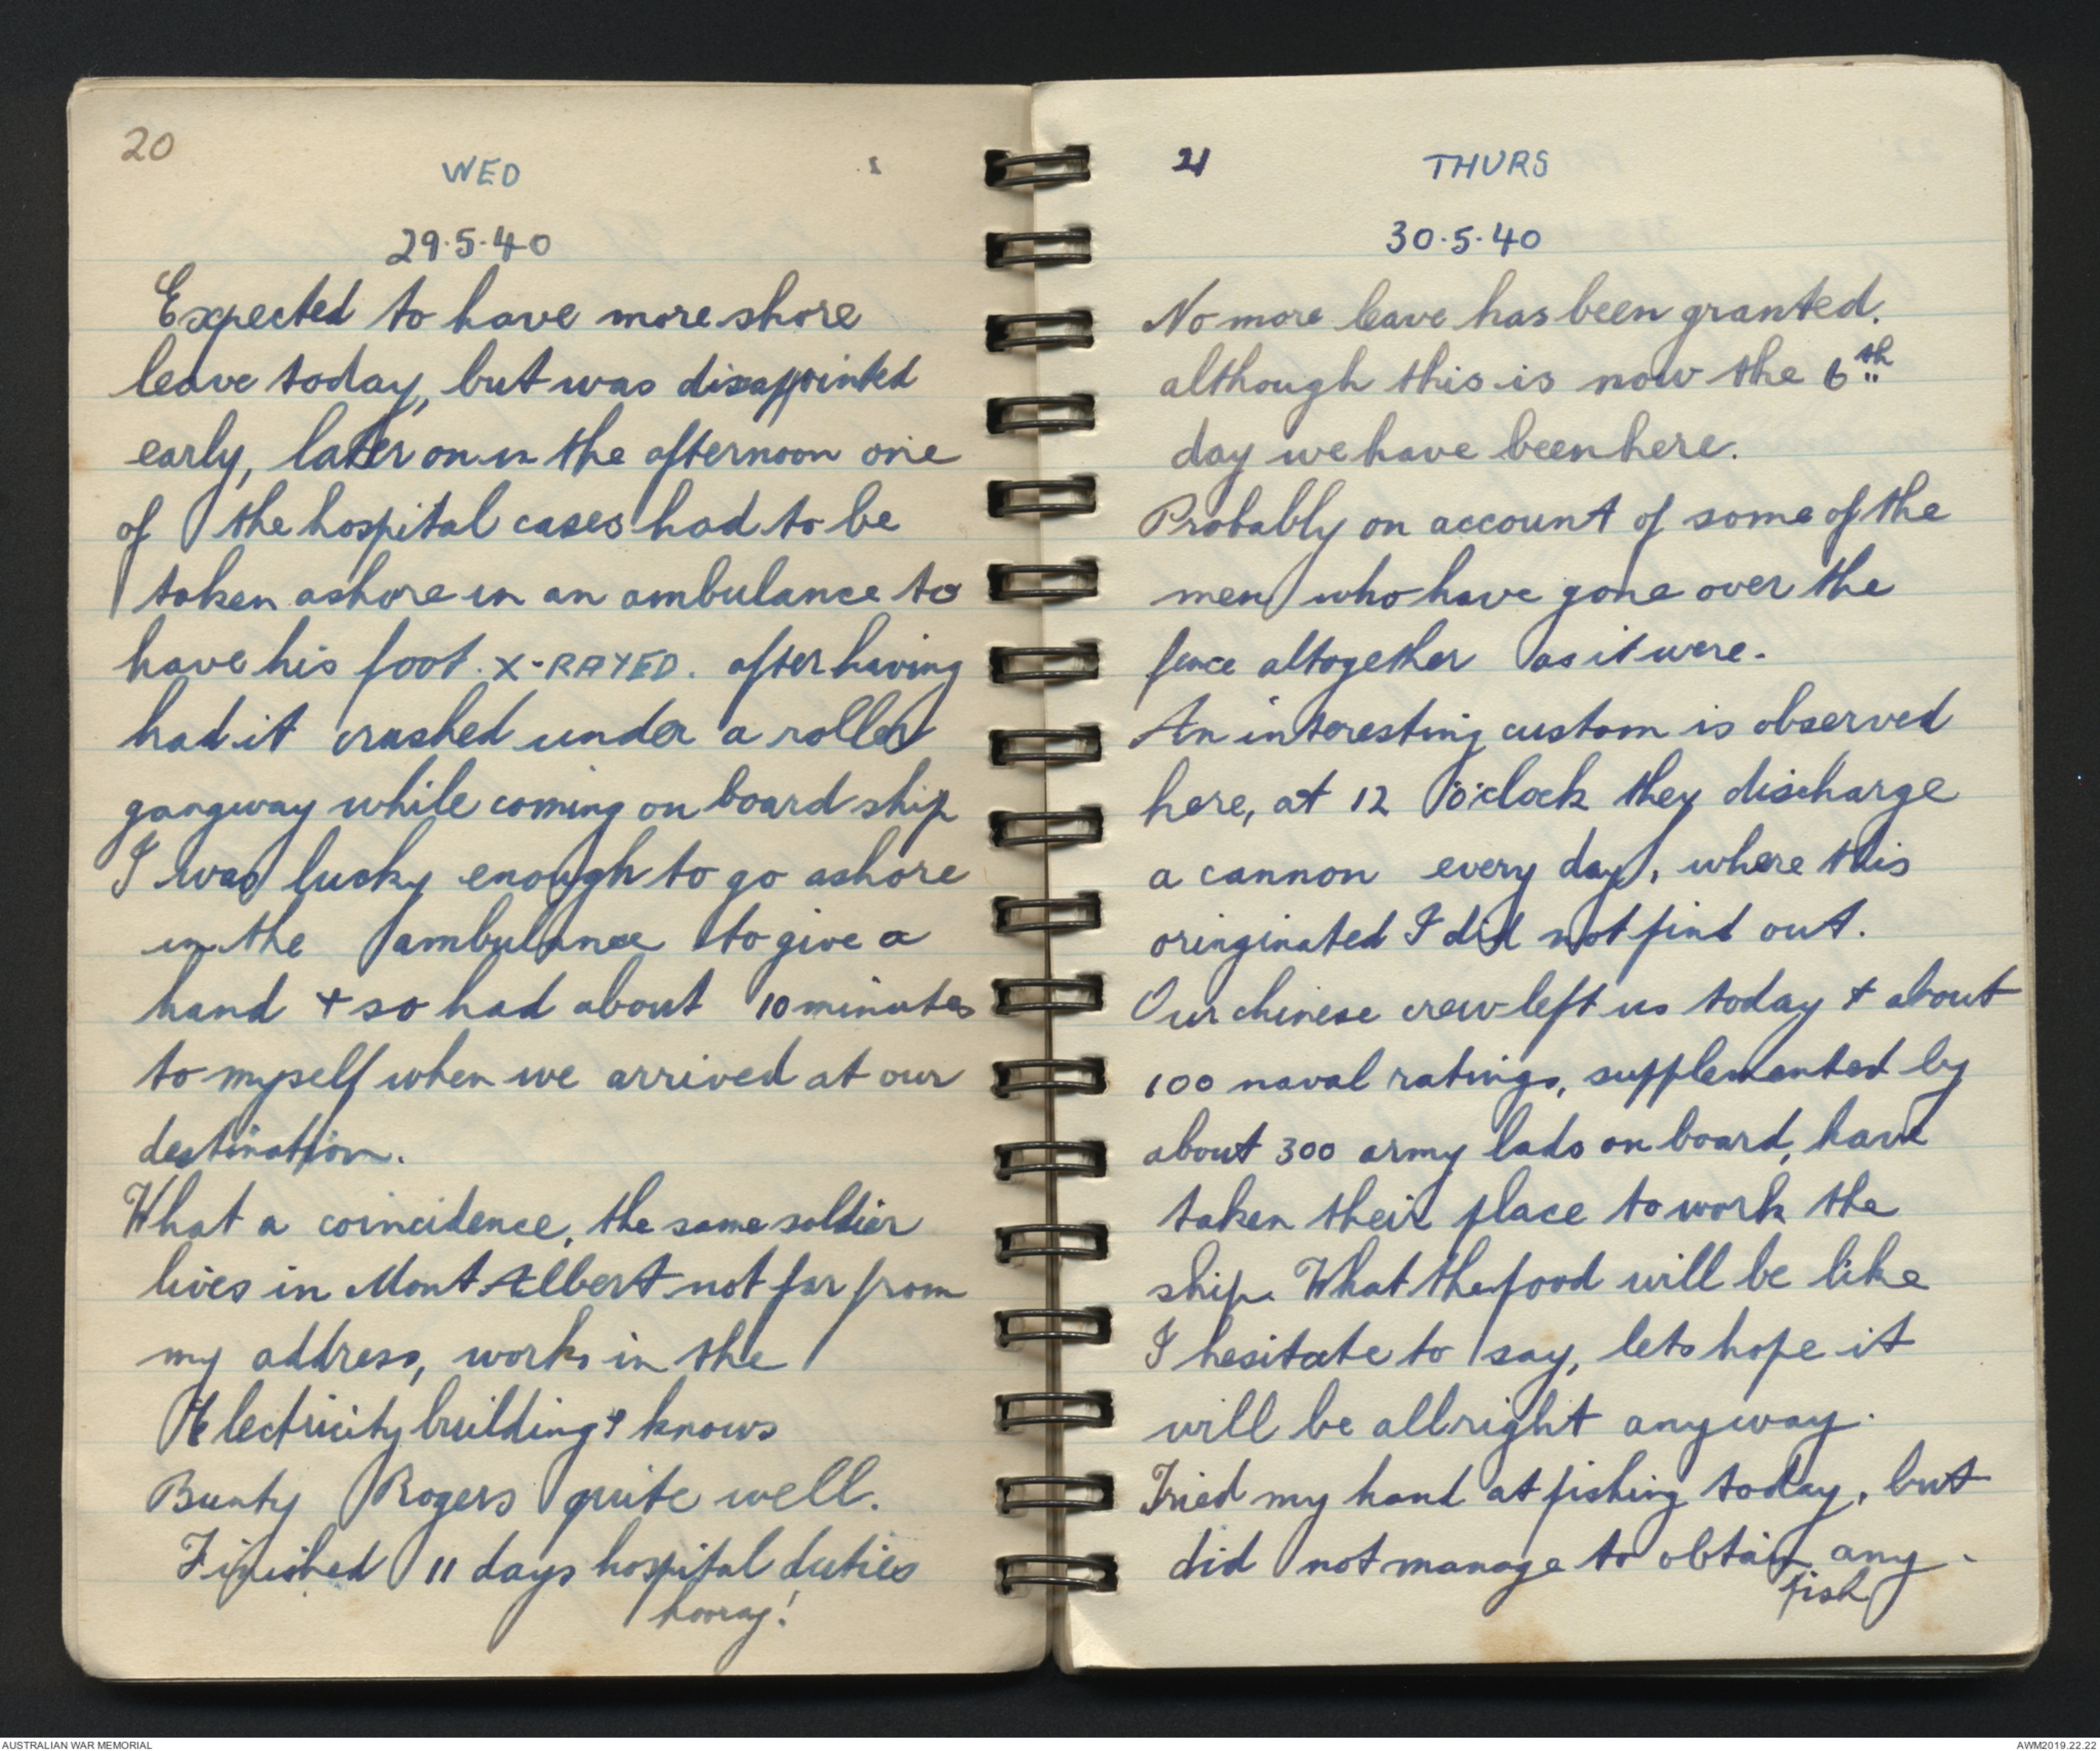 20
WED
29.5.40
Expected to have more shore
leave today, but was disappointed
early, later on in the afternoon one
of the hospital cases had to be
taken ashore in an ambulance to
have his foot. X-RAYED. after having
had it crushed under a roller
gangway while coming on board ship
I was lucky enough to go ashore
in the ambulance to give a
hand + so had about 10 minutes
to myself when we arrived at our
destination.
What a coincidence, the same soldier
lives in Mont Albert not far from
my address, works in the
Electricity building + knows
Bunty Rogers quite well.
Finished 11 days hospital duties
hooray!
21
THURS
30.5.40
No more leave has been granted.
although this is now the 6th
day we have been here.
Probably on account of some of the
men who have gone over the
fence altogether as it were.
An interesting custom is observed
here, at 12 o'clock they discharge
a cannon every day, where this
oringinated I did not find out.
Our chinese crew left us today + about
100 naval ratings, supplemented by
about 300 army lads on board, have
taken their place to work the
ship. What the food will be like
I hesitate to say, lets hope it
will be allright anyway.
Tried my hand at fishing today, but
did not manage to obtain any
fish
AUSTRALIAN WAR MEMORIAL
AWM2019.22.22